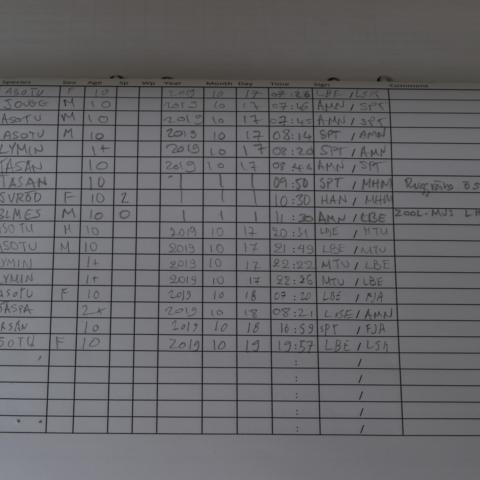 Species Sex Age Sp Wp Year Month Day Time Sign Comment
ASOTU F 10 2019 10 17 07:26 LBE / LSR
JOUGG M 10 2019 10 17 07:45 AMN / SPT
ASOTU M 10 2019 10 17 07:45 AMN / SPT
ASOTU M 10 2019 10 17 08:14 SPT / AMN
LYMIN 1+ 2019 10 17 08:20 SPT / AMN
TASAN 10 2019 10 17 AMN / SPT
TASAN 10 " 1 1 09:50 SPT / MHM
SVROD F 10 2 1 1 10:30 HAN / MHM
BLMES M 10 0 1 1 1 11:20 AMN / LBE
SOTU M 10 2019 10 17 20:31 LBE / MTU
SOTU M 10 2019 10 17 21:49 LBE / MTU
YMIN 1+ 2019 10 17 22:22 MTU / LBE
YMIN 1+ 2019 10 17 22:26 MTU / LBE
ASOTU F 10 2019 10 18 07:20 LBE / FJA
2+ 2019 10 18 08:21 LBE / AMN
ASAN 10 2019 10 18 16:59 SPT / FJA
SOTU F 10 2019 10 19 19:57 LBE / LSR
: /
: /
: /
: /